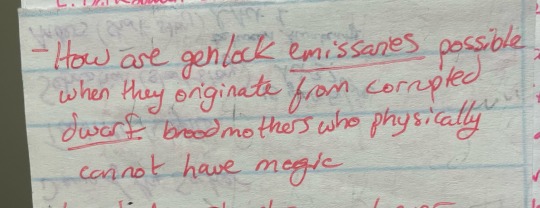 - How are genlock emissaries possible
when they originate from corrupted
dwarf broodmothers who physically
cannot have magic